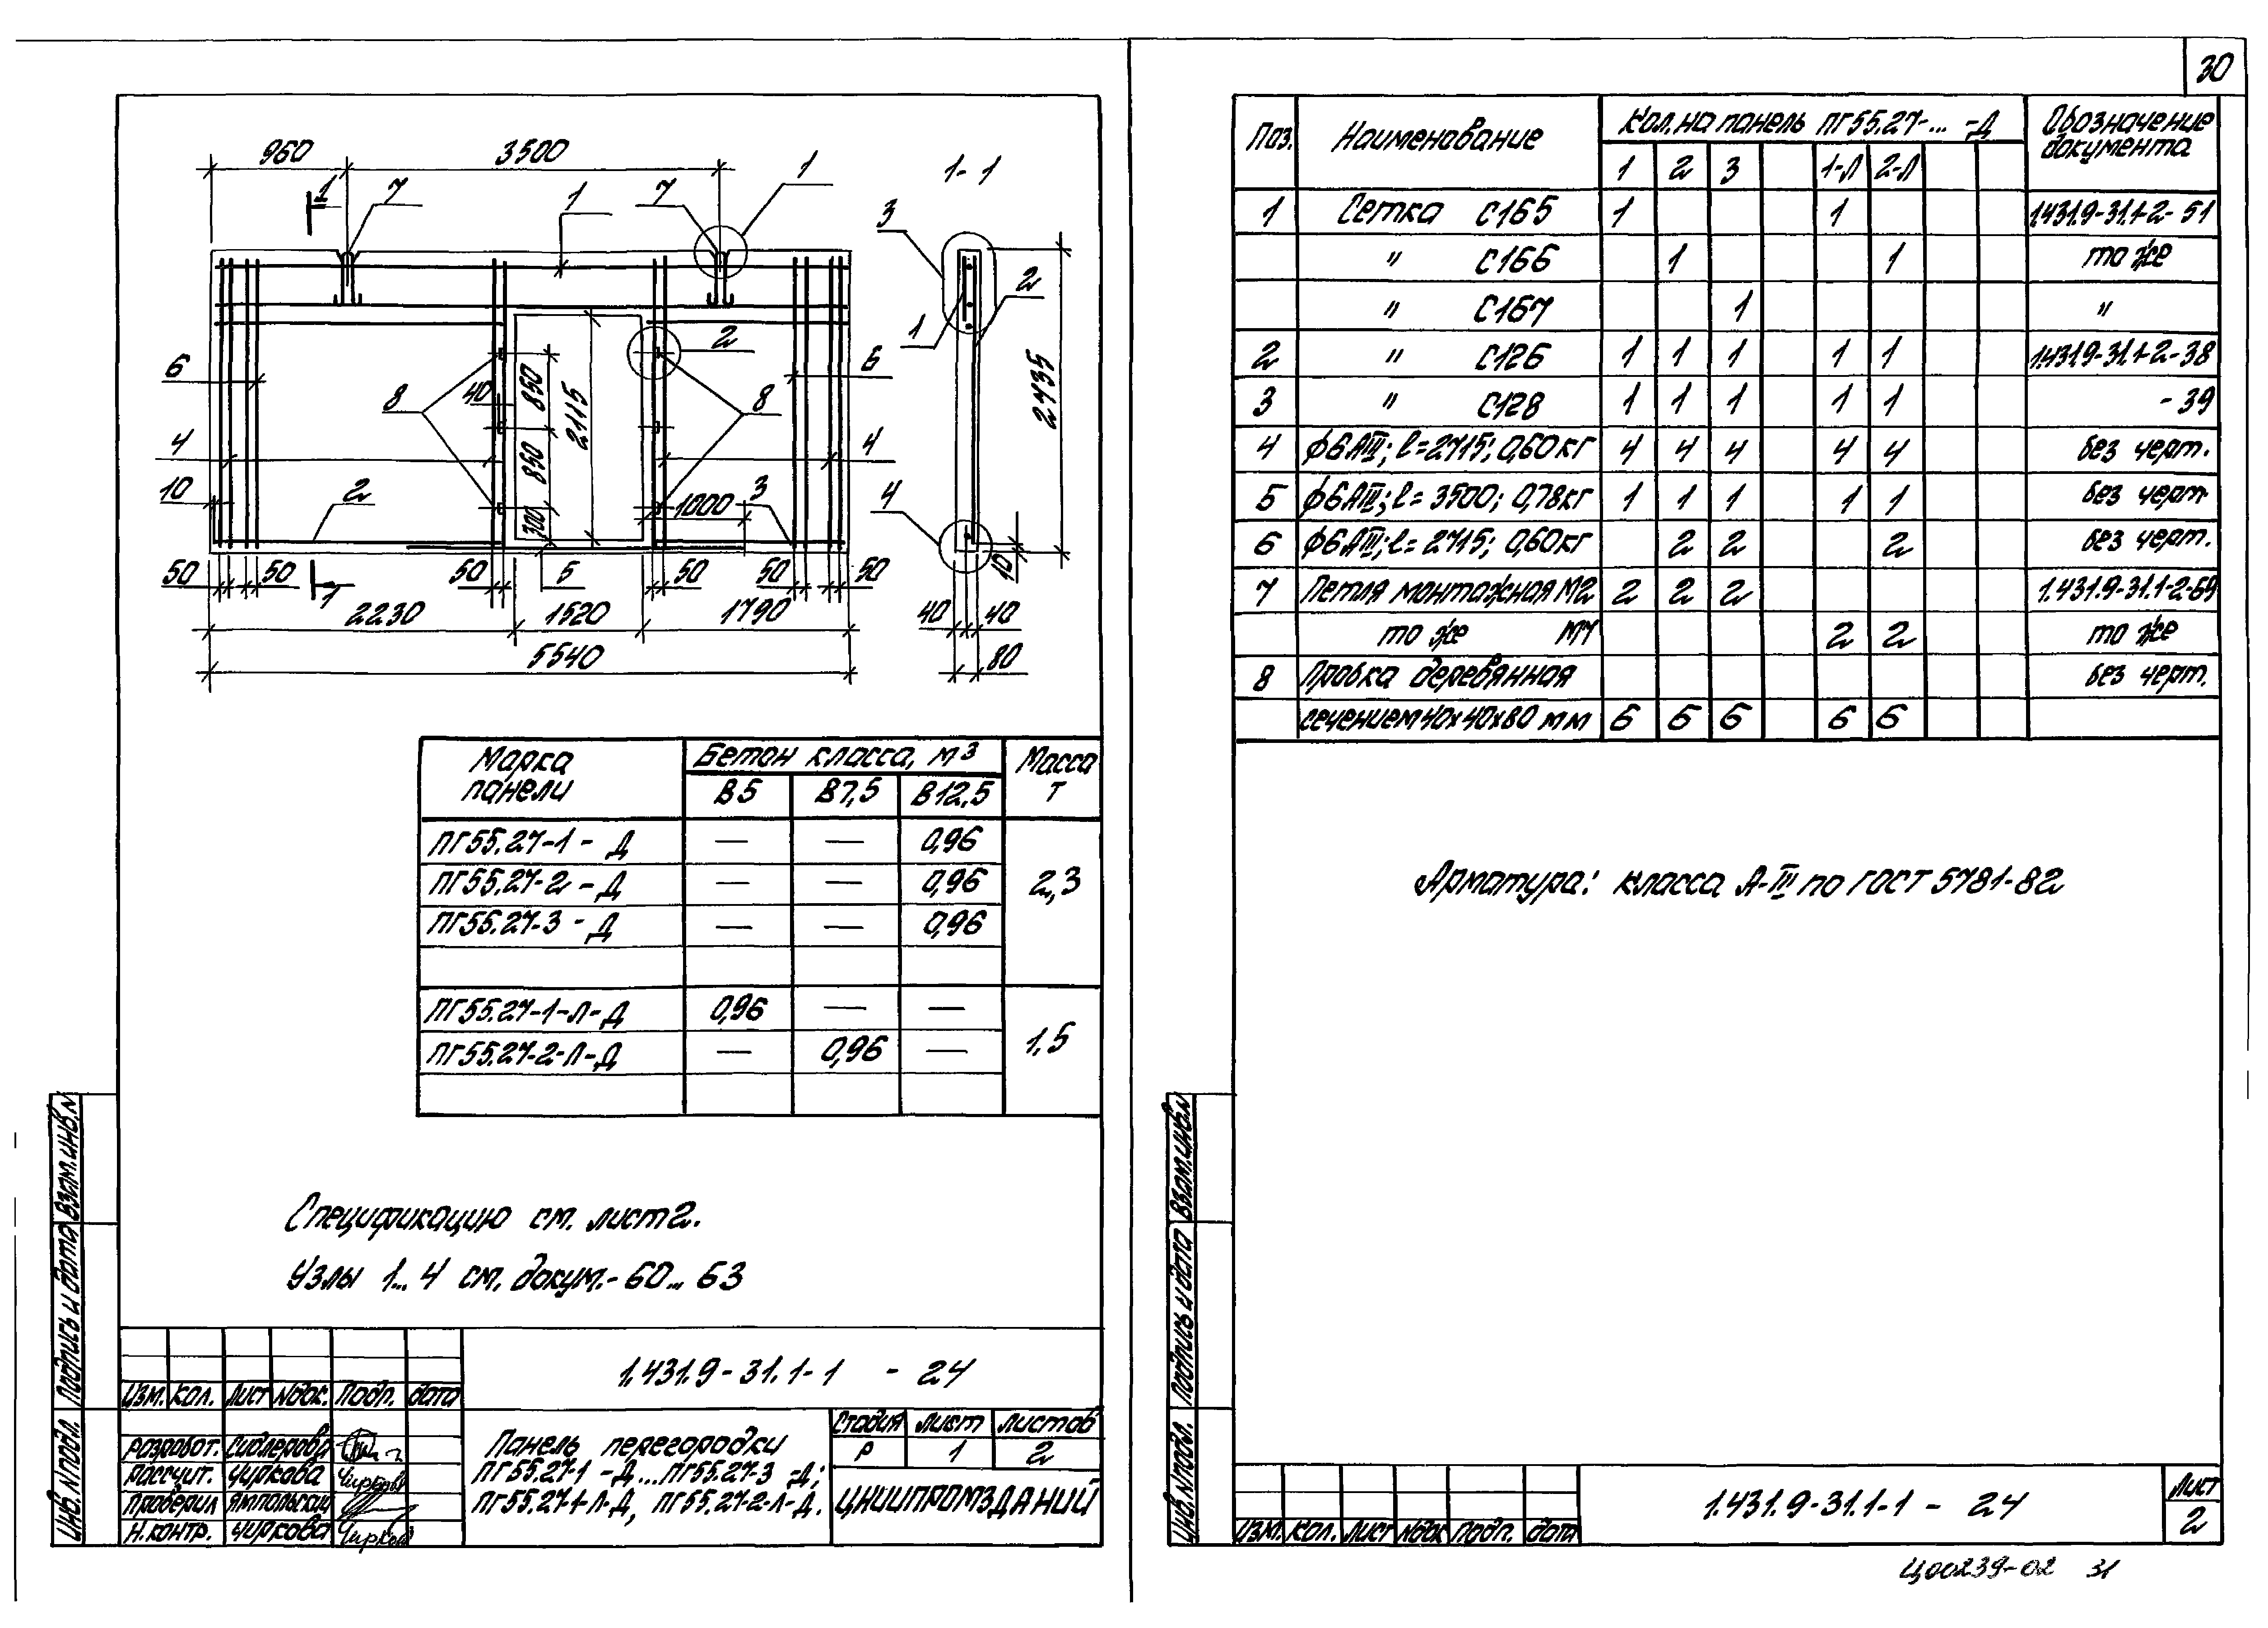 30
960
3500
1
1-1
1
7
1
7
3
2
1
6
8
40
850
2115
2
8
6
2735
4
850
4
10
2
300
1000
3
4
50
50
1
50
5
50
50
50
10
2230
1520
1790
40
40
5540
80
Марка панели
Бетон класса, м³
Масса т
В5
В7,5
В12,5
ПГ55.27-1-Д — — 0,96
ПГ55.27-2-Д — — 0,96
2,3
ПГ55.27-3-Д — — 0,96
ПГ55.27-1-Л-Д 0,96 — —
1,5
ПГ55.27-2-Л-Д — 0,96 —
Спецификацию см. лист 2.
Узлы 1... 4 см. докум.- 60... 63
1.431.9-31.1-1 - 24
Изм. Кол. Лист №док. Подп. Дата
Разработ. Сидлерова
Рассчит. Чиркова Чиркова
Проверил Ямпольский
Н.контр. Чиркова Чиркова
Панель перегородки
ПГ55.27-1 -Д...ПГ55.27-3 -Д;
ПГ55.27-1-Л-Д, ПГ55.27-2-Л-Д.
Стадия Лист Листов
Р 1 2
ЦНИИПРОМЗДАНИЙ
Инв.№подл. Подпись и дата Взам.инв.№
Поз. Наименование Кол. на панель ПГ55.27-... -Д Обозначение документа
1 2 3 1-Л 2-Л
1 Сетка С165 1 1 1.431.9-31.1-2-51
" С166 1 1 то же
" С167 1 "
2 " С126 1 1 1 1 1 1.431.9-31.1-2-38
3 " С128 1 1 1 1 1 -39
4 ф6АIII; l=2715; 0,60кг 4 4 4 4 4 без черт.
5 ф6АIII; l=3500; 0,78кг 1 1 1 1 1 без черт.
6 ф6АIII; l=2715; 0,60кг 2 2 2 без черт.
7 Петля монтажная М2 2 2 2 1.431.9-31.1-2-69
то же М7 2 2 то же
8 Пробка деревянная без черт.
сечением 40х40х80 мм 6 6 6 6 6
Арматура: класса А-III по ГОСТ 5781-82
Инв.№подл. Подпись и дата Взам.инв.№
Изм. Кол. Лист №док Подп. Дата
1.431.9-31.1-1 - 24
Лист
2
Ц00239-02 31